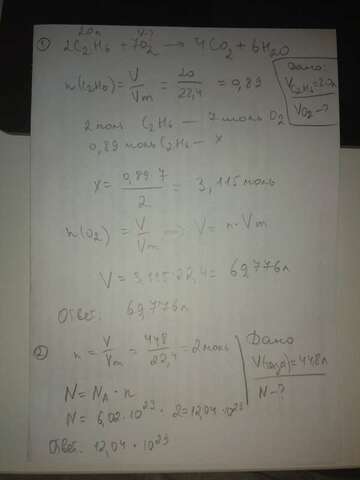 20л V-?
① 2C₂H₆ + 7O₂ → 4CO₂ + 6H₂O
Дано:
V C₂H₆ = 20л
V O₂ - ?
n(C₂H₆) = V/Vm = 20/22,4 = 0,89
2 моль C₂H₆ — 7 моль O₂
0,89 моль C₂H₆ — x
x = 0,89·7/2 = 3,115 моль
n(O₂) = V/Vm → V = n·Vm
V = 3,115·22,4 = 69,776л
Ответ: 69,776л
② n = V/Vm = 448/22,4 = 2 моль
Дано
V(газа) = 448л
N - ?
N = NA · n
N = 6,02·10²³ · 2 = 12,04·10²³
Ответ: 12,04 · 10²³